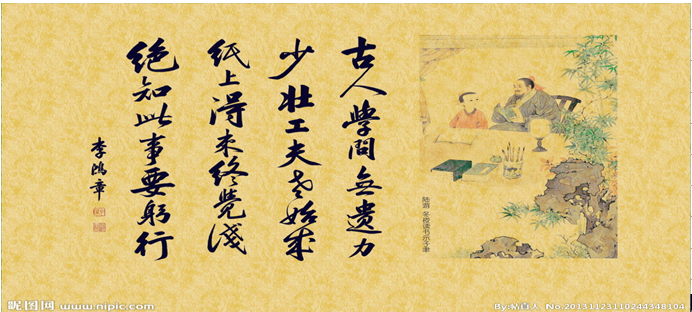 古人學問無遗力
少壮工夫老始成
纸上得来终覺淺
绝知此事要躬行
李鸿章
陆游 冬夜读书示子聿
昵图网 www.nipic.com
By:帖百人 No.20131123110244348104